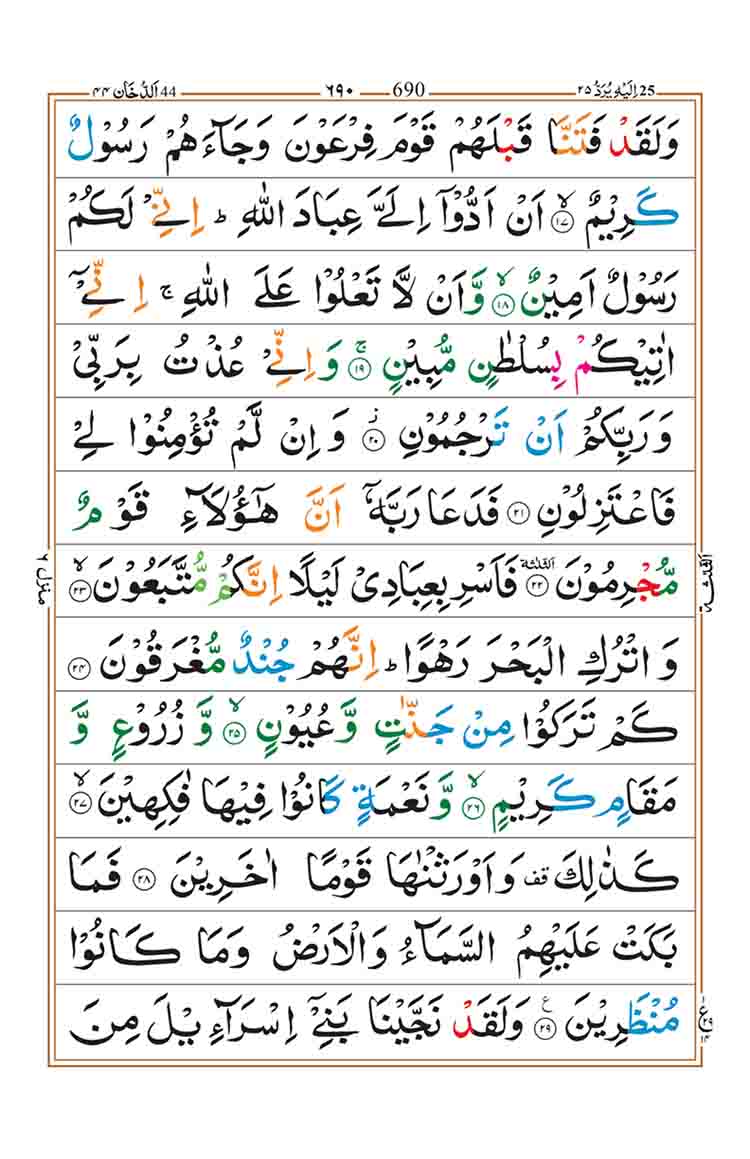 اِلَيْهِ يُرَدُّ ٢٥ 25 690 ٦٩٠ اَلدُّخَان ٤٤ 44
وَلَقَدْ فَتَنَّا قَبْلَهُمْ قَوْمَ فِرْعَوْنَ وَجَآءَهُمْ رَسُوْلٌ
كَرِيْمٌ ۙ‏﴿۱۷﴾ اَنْ اَدُّوْۤا اِلَیَّ عِبَادَ اللّٰهِ ؕ اِنِّیْ لَكُمْ
رَسُوْلٌ اَمِیْنٌ ۙ‏﴿۱۸﴾ وَّاَنْ لَّا تَعْلُوْا عَلَی اللّٰهِ ۚ اِنِّیْۤ
اٰتِیْكُمْ بِسُلْطٰنٍ مُّبِیْنٍ ۚ‏﴿۱۹﴾ وَاِنِّیْ عُذْتُ بِرَبِّیْ
وَرَبِّكُمْ اَنْ تَرْجُمُوْنِ ؗ‏﴿۲۰﴾ وَاِنْ لَّمْ تُؤْمِنُوْا لِیْ
فَاعْتَزِلُوْنِ ﴿۲۱﴾ فَدَعَا رَبَّهٗۤ اَنَّ هٰۤؤُلَآءِ قَوْمٌ
مُّجْرِمُوْنَ ﴿۲۲﴾ الثلثة فَاَسْرِ بِعِبَادِیْ لَیْلًا اِنَّكُمْ مُّتَّبَعُوْنَ ۙ‏﴿۲۳﴾
وَاتْرُكِ الْبَحْرَ رَهْوًا ؕ اِنَّهُمْ جُنْدٌ مُّغْرَقُوْنَ ﴿۲۴﴾
كَمْ تَرَكُوْا مِنْ جَنّٰتٍ وَّعُیُوْنٍ ۙ‏﴿۲۵﴾ وَّزُرُوْعٍ وَّ
مَقَامٍ كَرِیْمٍ ۙ‏﴿۲۶﴾ وَّنَعْمَةٍ كَانُوْا فِیْهَا فٰكِهِیْنَ ۙ‏﴿۲۷﴾
كَذٰلِكَ قف وَاَوْرَثْنٰهَا قَوْمًا اٰخَرِیْنَ ﴿۲۸﴾ فَمَا
بَكَتْ عَلَیْهِمُ السَّمَآءُ وَالْاَرْضُ وَمَا كَانُوْا
مُنْظَرِیْنَ ﴿۲۹﴾ ع وَلَقَدْ نَجَّیْنَا بَنِیْۤ اِسْرَآءِیْلَ مِنَ
الثلثة
منزل ٦
ع ٢٩ ١٤